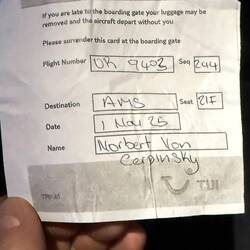 If you are late to the boarding gate your luggage may be
removed and the aircraft depart without you
Please surrender this card at the boarding gate
Flight Number OR 9403 Seq 244
Destination AMS Seat 21F
Date 1 Nov 25
Name Norbert Von
Carpinsky
TUI